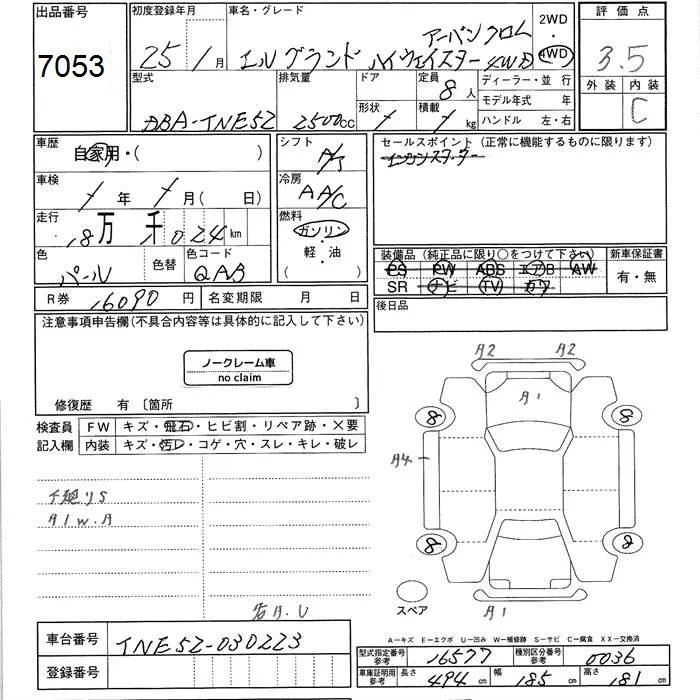 出品番号
7053
初度登録年月
25年1月
車名・グレード
アーバンクロム
エルグランド ハイウェイスター 4WD
2WD
4WD
評価点
3.5
外装 内装
C
型式
DBA-TNE52
排気量
2500cc
ドア
形状
定員
8人
積載
kg
ディーラー・並行
モデル年式 年
ハンドル 左・右
車歴
自家用・( )
シフト
A/T
セールスポイント(正常に機能するものに限ります)
車検
/年 /月( 日)
冷房
AA/C
走行
18万 千024km
燃料
ガソリン
・
軽・油
( )
色
パール
色替
色コード
QAB
装備品(純正品に限り○をつけて下さい)
PS PW ABS エアB AW
SR ナビ TV カワ
新車保証書
有・無
R券 16090円
名変期限 月 日
後日品
注意事項申告欄(不具合内容等は具体的に記入して下さい)
ノークレーム車
no claim
修復歴 有 〔箇所 〕
検査員
記入欄
FW キズ・飛石・ヒビ割・リペア跡・×要
内装 キズ・汚レ・コゲ・穴・スレ・キレ・破レ
A2 A2
A1
8 8
A4
8 8
A1
スペア
A1W.A
A-キズ E-エクボ U-凹み W-補修跡 S-サビ C-腐食 XX-交換済
車台番号 TNE52-030223
登録番号
型式指定番号
参考
16577
種別区分番号
参考
0036
車庫証明用
参考
長さ 494cm 幅 185cm 高さ 181cm